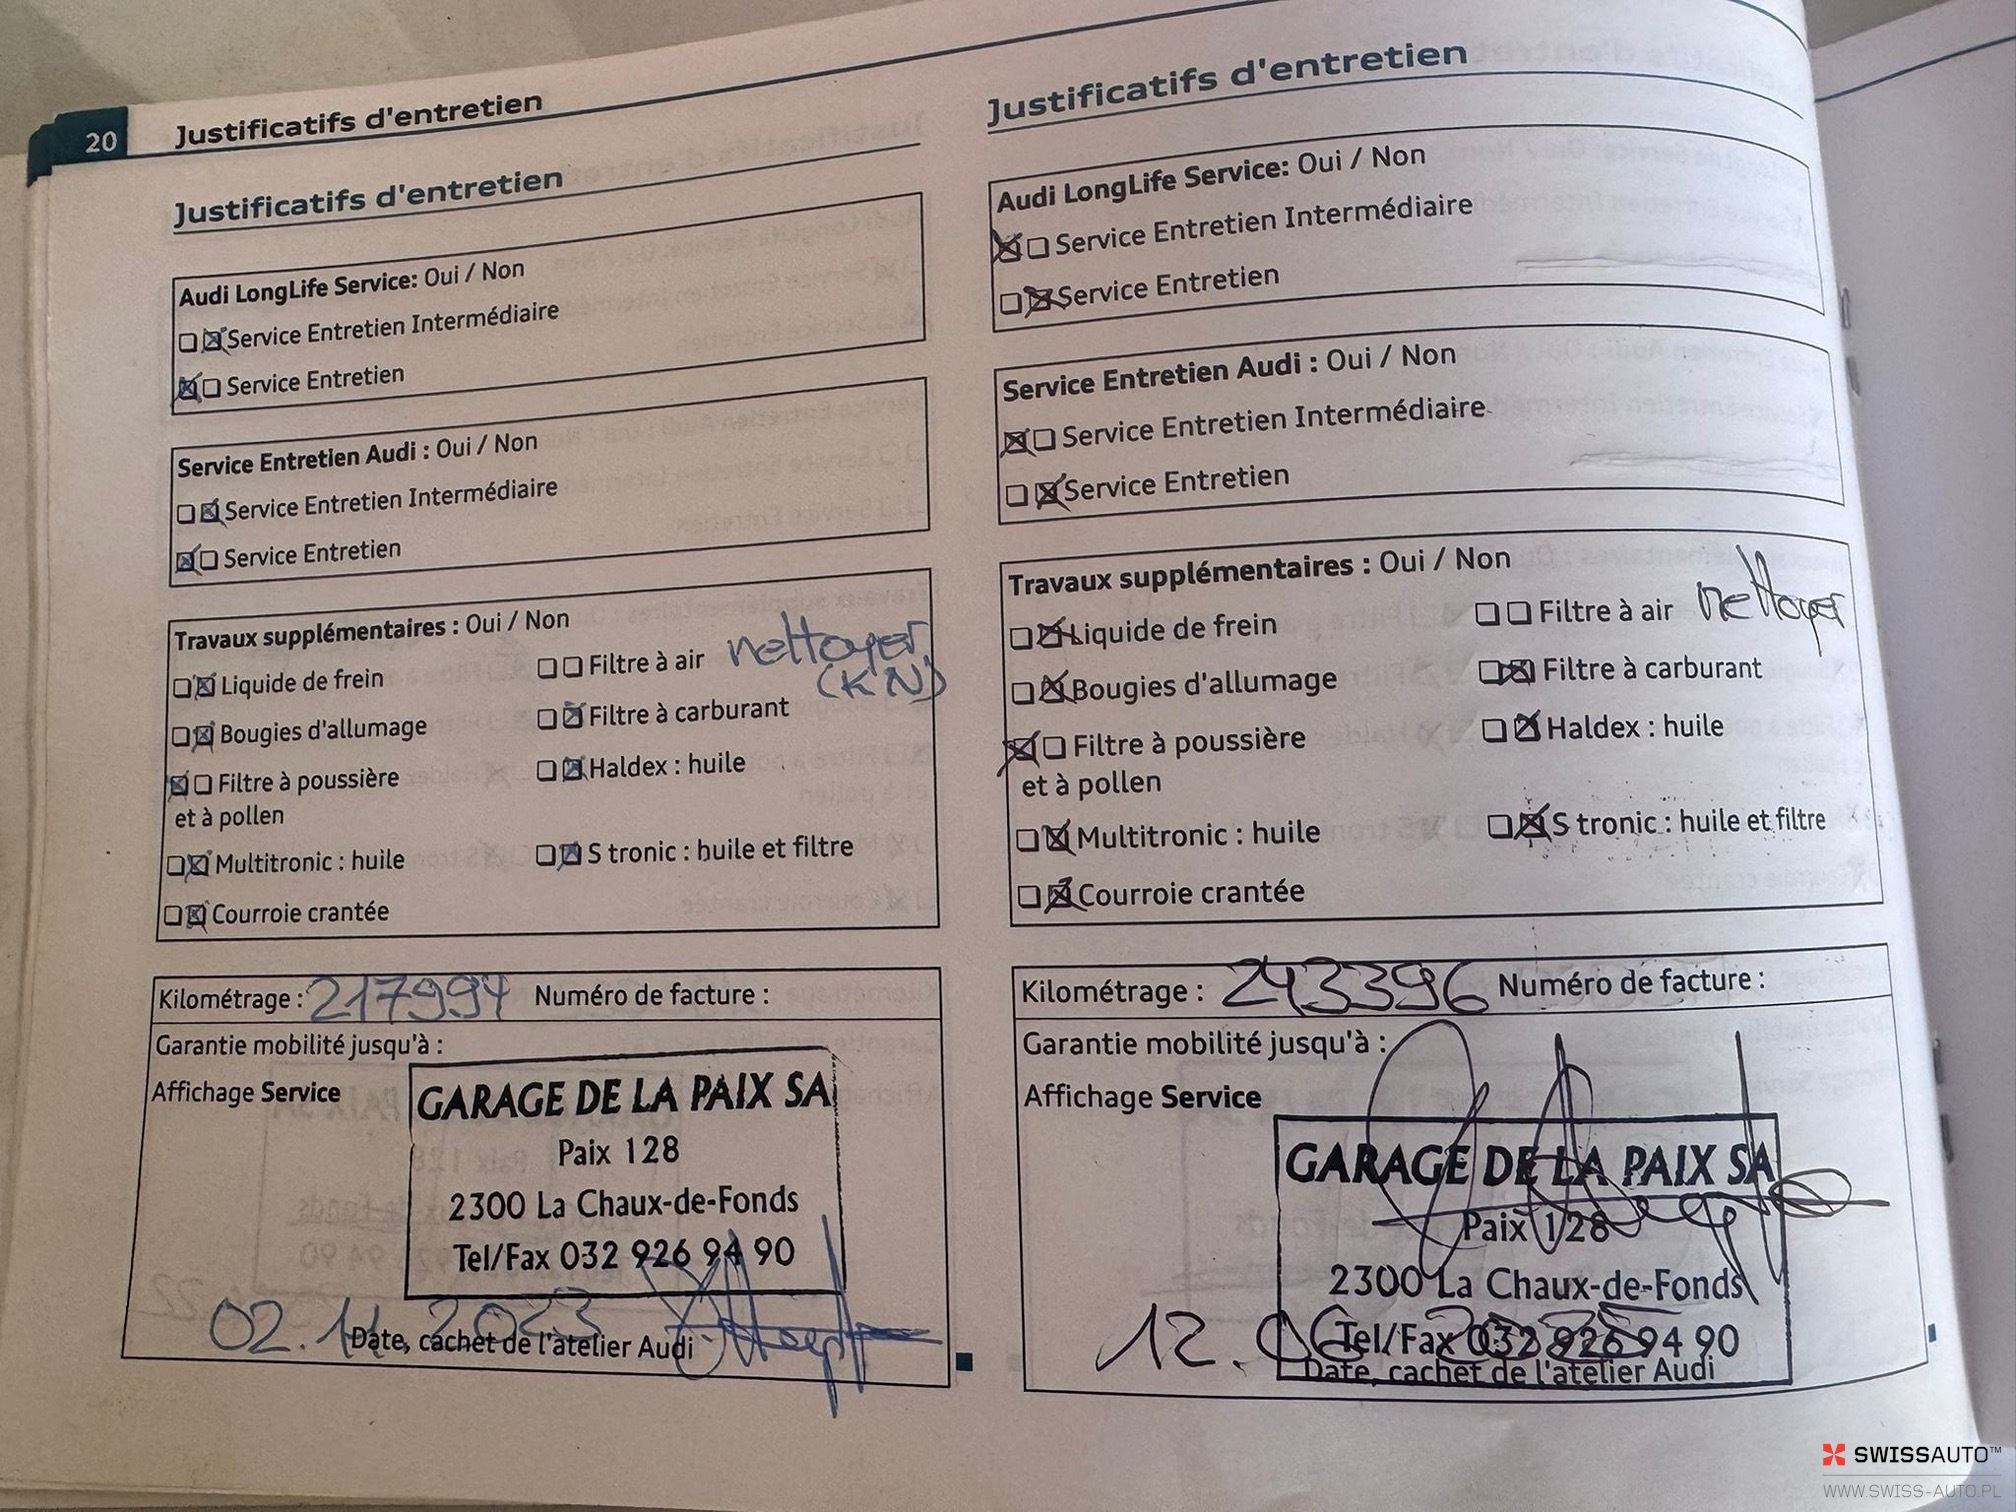 20
Justificatifs d'entretien
Justificatifs d'entretien
Audi LongLife Service: Oui / Non
Service Entretien Intermédiaire
Service Entretien
Service Entretien Audi : Oui / Non
Service Entretien Intermédiaire
Service Entretien
Travaux supplémentaires : Oui / Non
Liquide de frein
Filtre à air nettoyer
(KN)
Bougies d'allumage
Filtre à carburant
Filtre à poussière
et à pollen
Haldex : huile
Multitronic : huile
S tronic : huile et filtre
Courroie crantée
Kilométrage : 217994 Numéro de facture :
Garantie mobilité jusqu'à :
Affichage Service
GARAGE DE LA PAIX SA
Paix 128
2300 La Chaux-de-Fonds
Tel/Fax 032 926 94 90
02. 11 2023
Date, cachet de l'atelier Audi
Justificatifs d'entretien
Audi LongLife Service: Oui / Non
Service Entretien Intermédiaire
Service Entretien
Service Entretien Audi : Oui / Non
Service Entretien Intermédiaire
Service Entretien
Travaux supplémentaires : Oui / Non
Liquide de frein
Filtre à air nettoyer
Bougies d'allumage
Filtre à carburant
Filtre à poussière
et à pollen
Haldex : huile
Multitronic : huile
S tronic : huile et filtre
Courroie crantée
Kilométrage : 243396 Numéro de facture :
Garantie mobilité jusqu'à :
Affichage Service
GARAGE DE LA PAIX SA
Paix 128
2300 La Chaux-de-Fonds
Tel/Fax 032 926 94 90
12. 06
Date, cachet de l'atelier Audi
SWISSAUTO™
WWW.SWISS-AUTO.PL